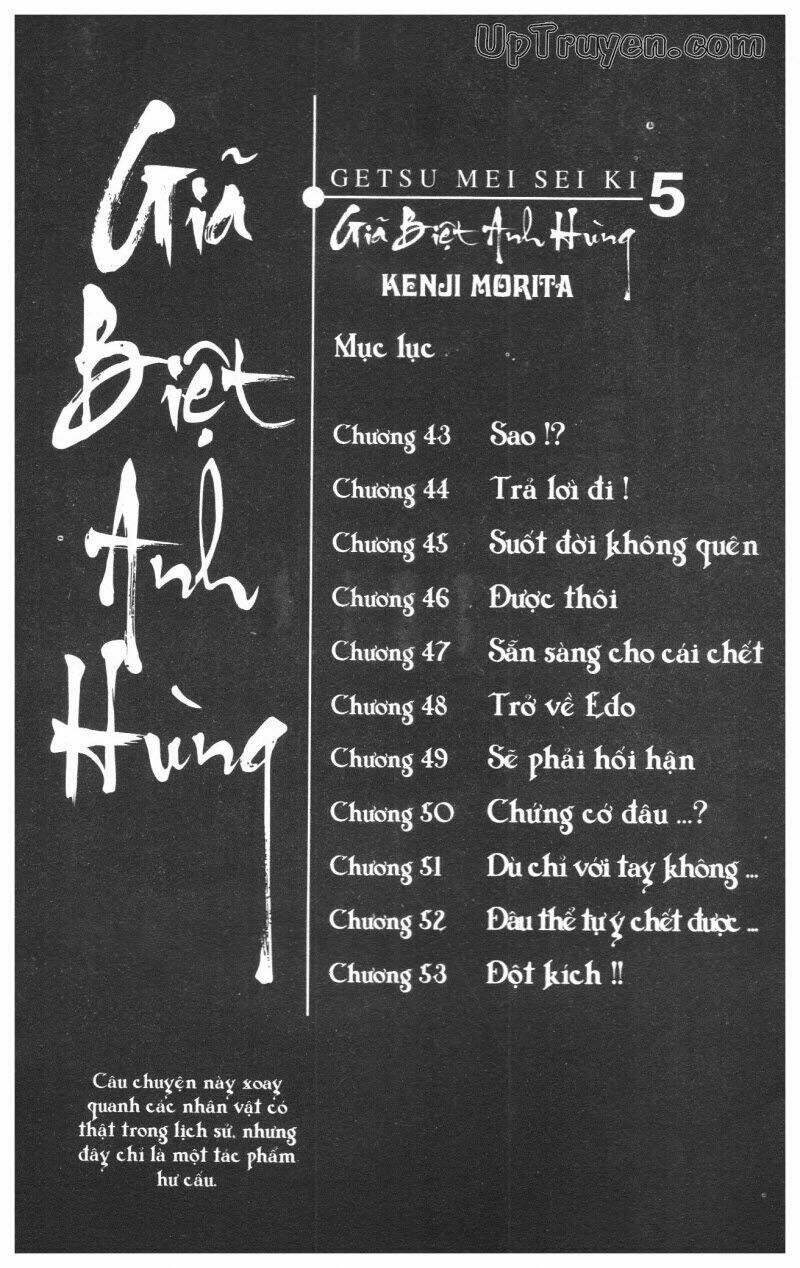 UpTruyen.com
Giã
Biệt
Anh
Hùng
GETSU MEI SEI KI 5
Giã Biệt Anh Hùng
KENJI MORITA
Mục lục
Chương 43 Sao !?
Chương 44 Trả lời đi !
Chương 45 Suốt đời không quên
Chương 46 Được thôi
Chương 47 Sẵn sàng cho cái chết
Chương 48 Trở về Edo
Chương 49 Sẽ phải hối hận
Chương 50 Chứng cớ đâu ...?
Chương 51 Dù chỉ với tay không ...
Chương 52 Đâu thể tự ý chết được ...
Chương 53 Đột kích !!
Câu chuyện này xoay
quanh các nhân vật có
thật trong lịch sử, nhưng
đây chỉ là một tác phẩm
hư cấu.